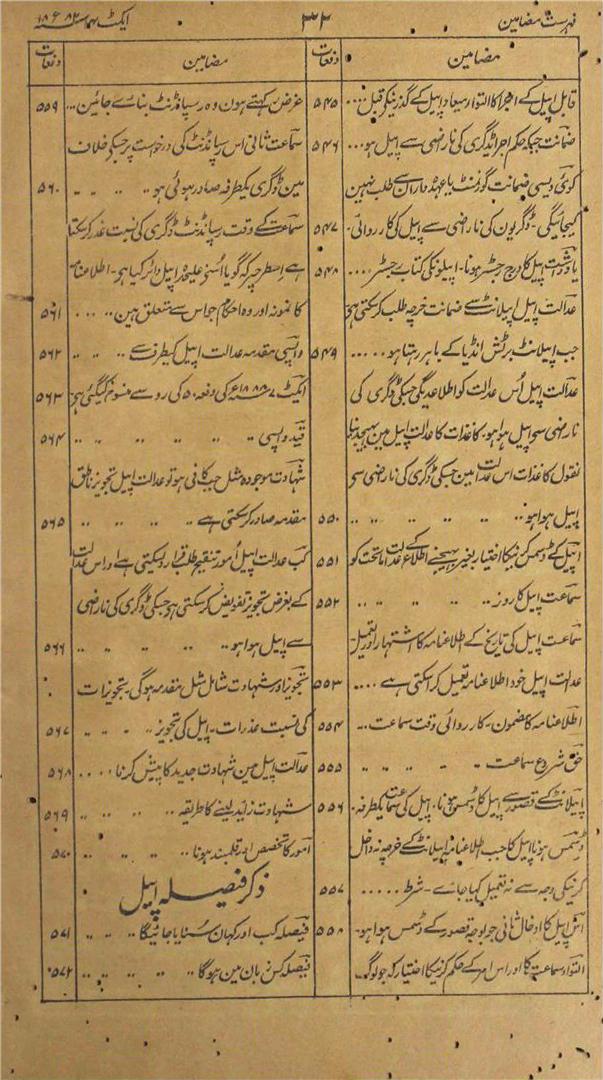 فہرست مضامین
۳۲
ایکٹ
مضامین
دفعات
قابل اپیل کے اجرا کا التوا۔ میعاد اپیل کے گذرنیکے قبل...
۵۴۵
ضمانت جبکہ حکم اجرا ڈگری کی ناراضی سے اپیل ہو...
۵۴۶
کوئی ایسی ضمانت گورنمنٹ یا عہدہ داران سے طلب نہین
کیجائیگی۔ ڈگریون کی ناراضی سے اپیل کی کارروائی۔
۵۴۷
یادداشت اپیل کا درج رجسٹر ہونا۔ اپیلونکی کتاب رجسٹر...
۵۴۸
عدالت اپیل اپیلانٹ سے ضمانت خرچہ طلب کرسکتی ہے
جب اپیلانٹ برٹش انڈیا کے باہر رہتا ہو.....
۵۴۹
عدالت اپیل اُس عدالت کو اطلاع دیگی جسکی ڈگری کی
ناراضی سے اپیل ہوا ہو۔ کاغذات کا عدالت اپیل مین بھیجدینا
نقول کاغذات اس عدالت مین جسکی ڈگری کی ناراضی سے
اپیل ہوا ہو..
۵۵۰
اپیل کے ڈسمس کرنیکا اختیار بغیر بھیجنے اطلاع کے عدالت ماتحت کو
۵۵۱
سماعت اپیل کا روز..
۵۵۲
سماعت اپیل کی تاریخ کے اطلاعنامہ کا اشتہار اور تعمیل۔
عدالت اپیل خود اطلاعنامہ تعمیل کراسکتی ہے....
۵۵۳
اطلاعنامہ کا مضمون۔ کارروائی وقت سماعت...
۵۵۴
حق شروع سماعت..
۵۵۵
اپیلانٹ کے قصور سے اپیل کا ڈسمس ہونا۔ اپیل کی سماعت یکطرفہ۔
۵۵۶
ڈسمس ہونا اپیل کا جب اطلاعنامہ اپیلانٹ کے خرچہ نہ داخل
کرنیکی وجہ سے نہ تعمیل کیا جائے۔ شرط.....
۵۵۷
اُس اپیل کا ادخال ثانی جو بوجہ قصور کے ڈسمس ہوا ہو۔
۵۵۸
التواء سماعت کا اور اس امر کے حکم کرنیکا اختیار کہ جو لوگ۔
مضامین
دفعات
غرض رکھتے ہون وہ رسپانڈنٹ بنائے جائین...
۵۵۹
سماعت ثانی اس رسپانڈنٹ کی درخواست پر جسکے خلاف
مین ڈگری یکطرفہ صادر ہوئی ہو..
۵۶۰
سماعت کے وقت رسپانڈنٹ ڈگری کی نسبت عذر کرسکتا
ہے اسطرحپر کہ گویا اُسنے علیحدہ اپیل دائر کیا ہو۔ اطلاعنامہ
کا نمونہ اور وہ احکام جو اس سے متعلق ہین....
۵۶۱
واپسی مقدمہ عدالت اپیل کیطرف سے..
۵۶۲
کی دفعہ ۵۰ کی رو سے منسوخ کیگئی ہے
۵۶۳
قید واپسی..
۵۶۴
شہادت موجودہ مثل جب کافی ہو تو عدالت اپیل تجویز ناطق
مقدمہ صادر کرسکتی ہے..
۵۶۵
کب عدالت اپیل امور تنقیح طلب قرار دیسکتی ہے اور اس عدالت
کے بغرض تجویز تفویض کرسکتی ہے جسکی ڈگری کی ناراضی
سے اپیل ہوا ہو..
۵۶۶
تجویز اور شہادت شامل مثل مقدمہ ہوگی۔ تجویزات
کی نسبت عذرات۔ اپیل کی تجویز..
۵۶۷
عدالت اپیل مین شہادت جدید کا پیش کرنا....
۵۶۸
شہادت زاید لینے کا طریقہ..
۵۶۹
امور کا تخصیص اور قلمبند ہونا..
۵۷۰
ذکر فیصلہ اپیل
فیصلہ کب اور کہان سنایا جائیگا..
۵۷۱
فیصلہ کس زبان مین ہوگا..
۵۷۲